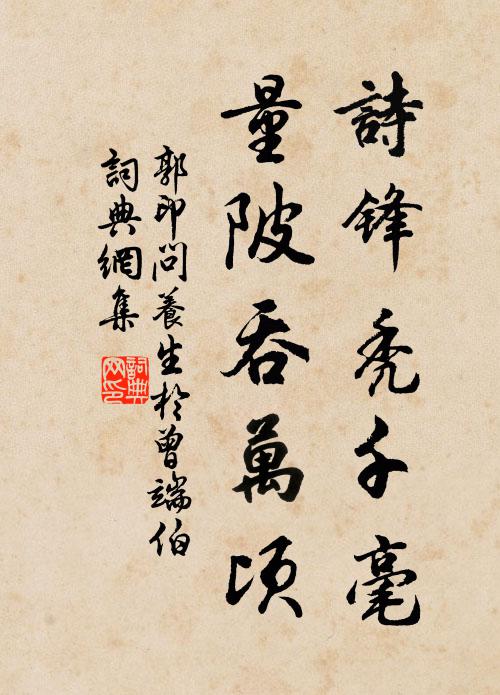 詩鋒秃千毫
量陂吞萬頃
郭印問養生於曾端伯
詞典網集
詞典网印